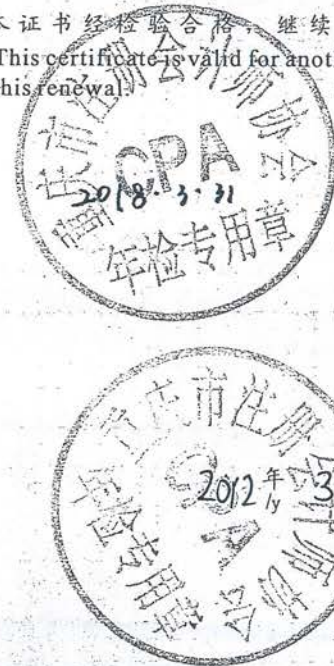 本证书经检验合格，继续
This certificate is valid for anot
his renewal.
重庆市注册会计师协会
CPA
2018.3.31
年检专用章
重庆市注册会计师协会
CPA
2012年 3
/y
年检专用章